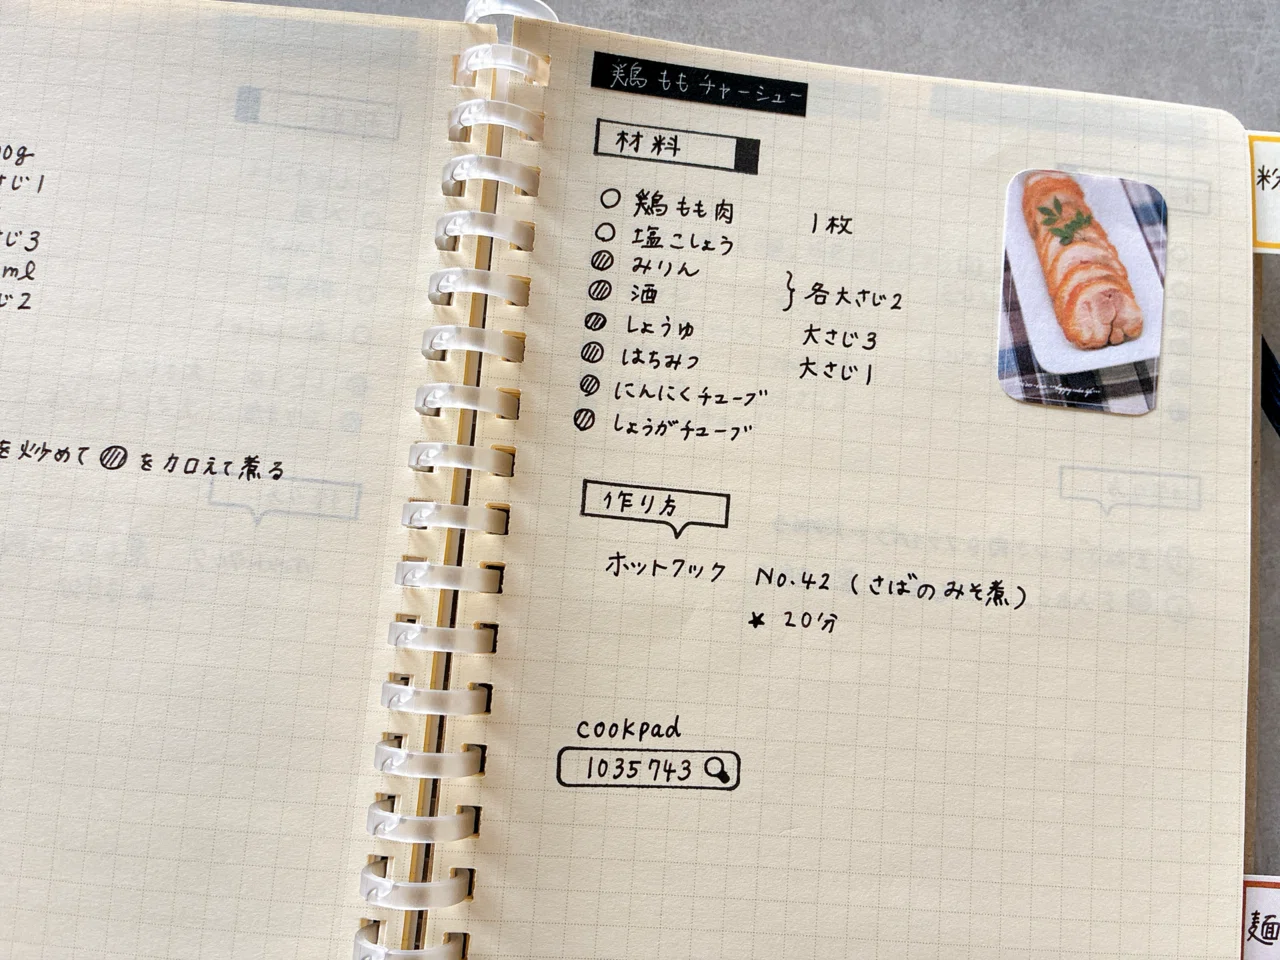 00g
さじ1
さじ3
ml
じ2
を炒めて を加えて煮る
鶏ももチャーシュー
材料
鶏もも肉 1枚
塩こしょう
みりん
酒 } 各大さじ2
しょうゆ 大さじ3
はちみつ 大さじ1
にんにくチューブ
しょうがチューブ
作り方
ホットクック No.42 (さばのみそ煮)
★ 20分
cookpad
1035743
粉
麺